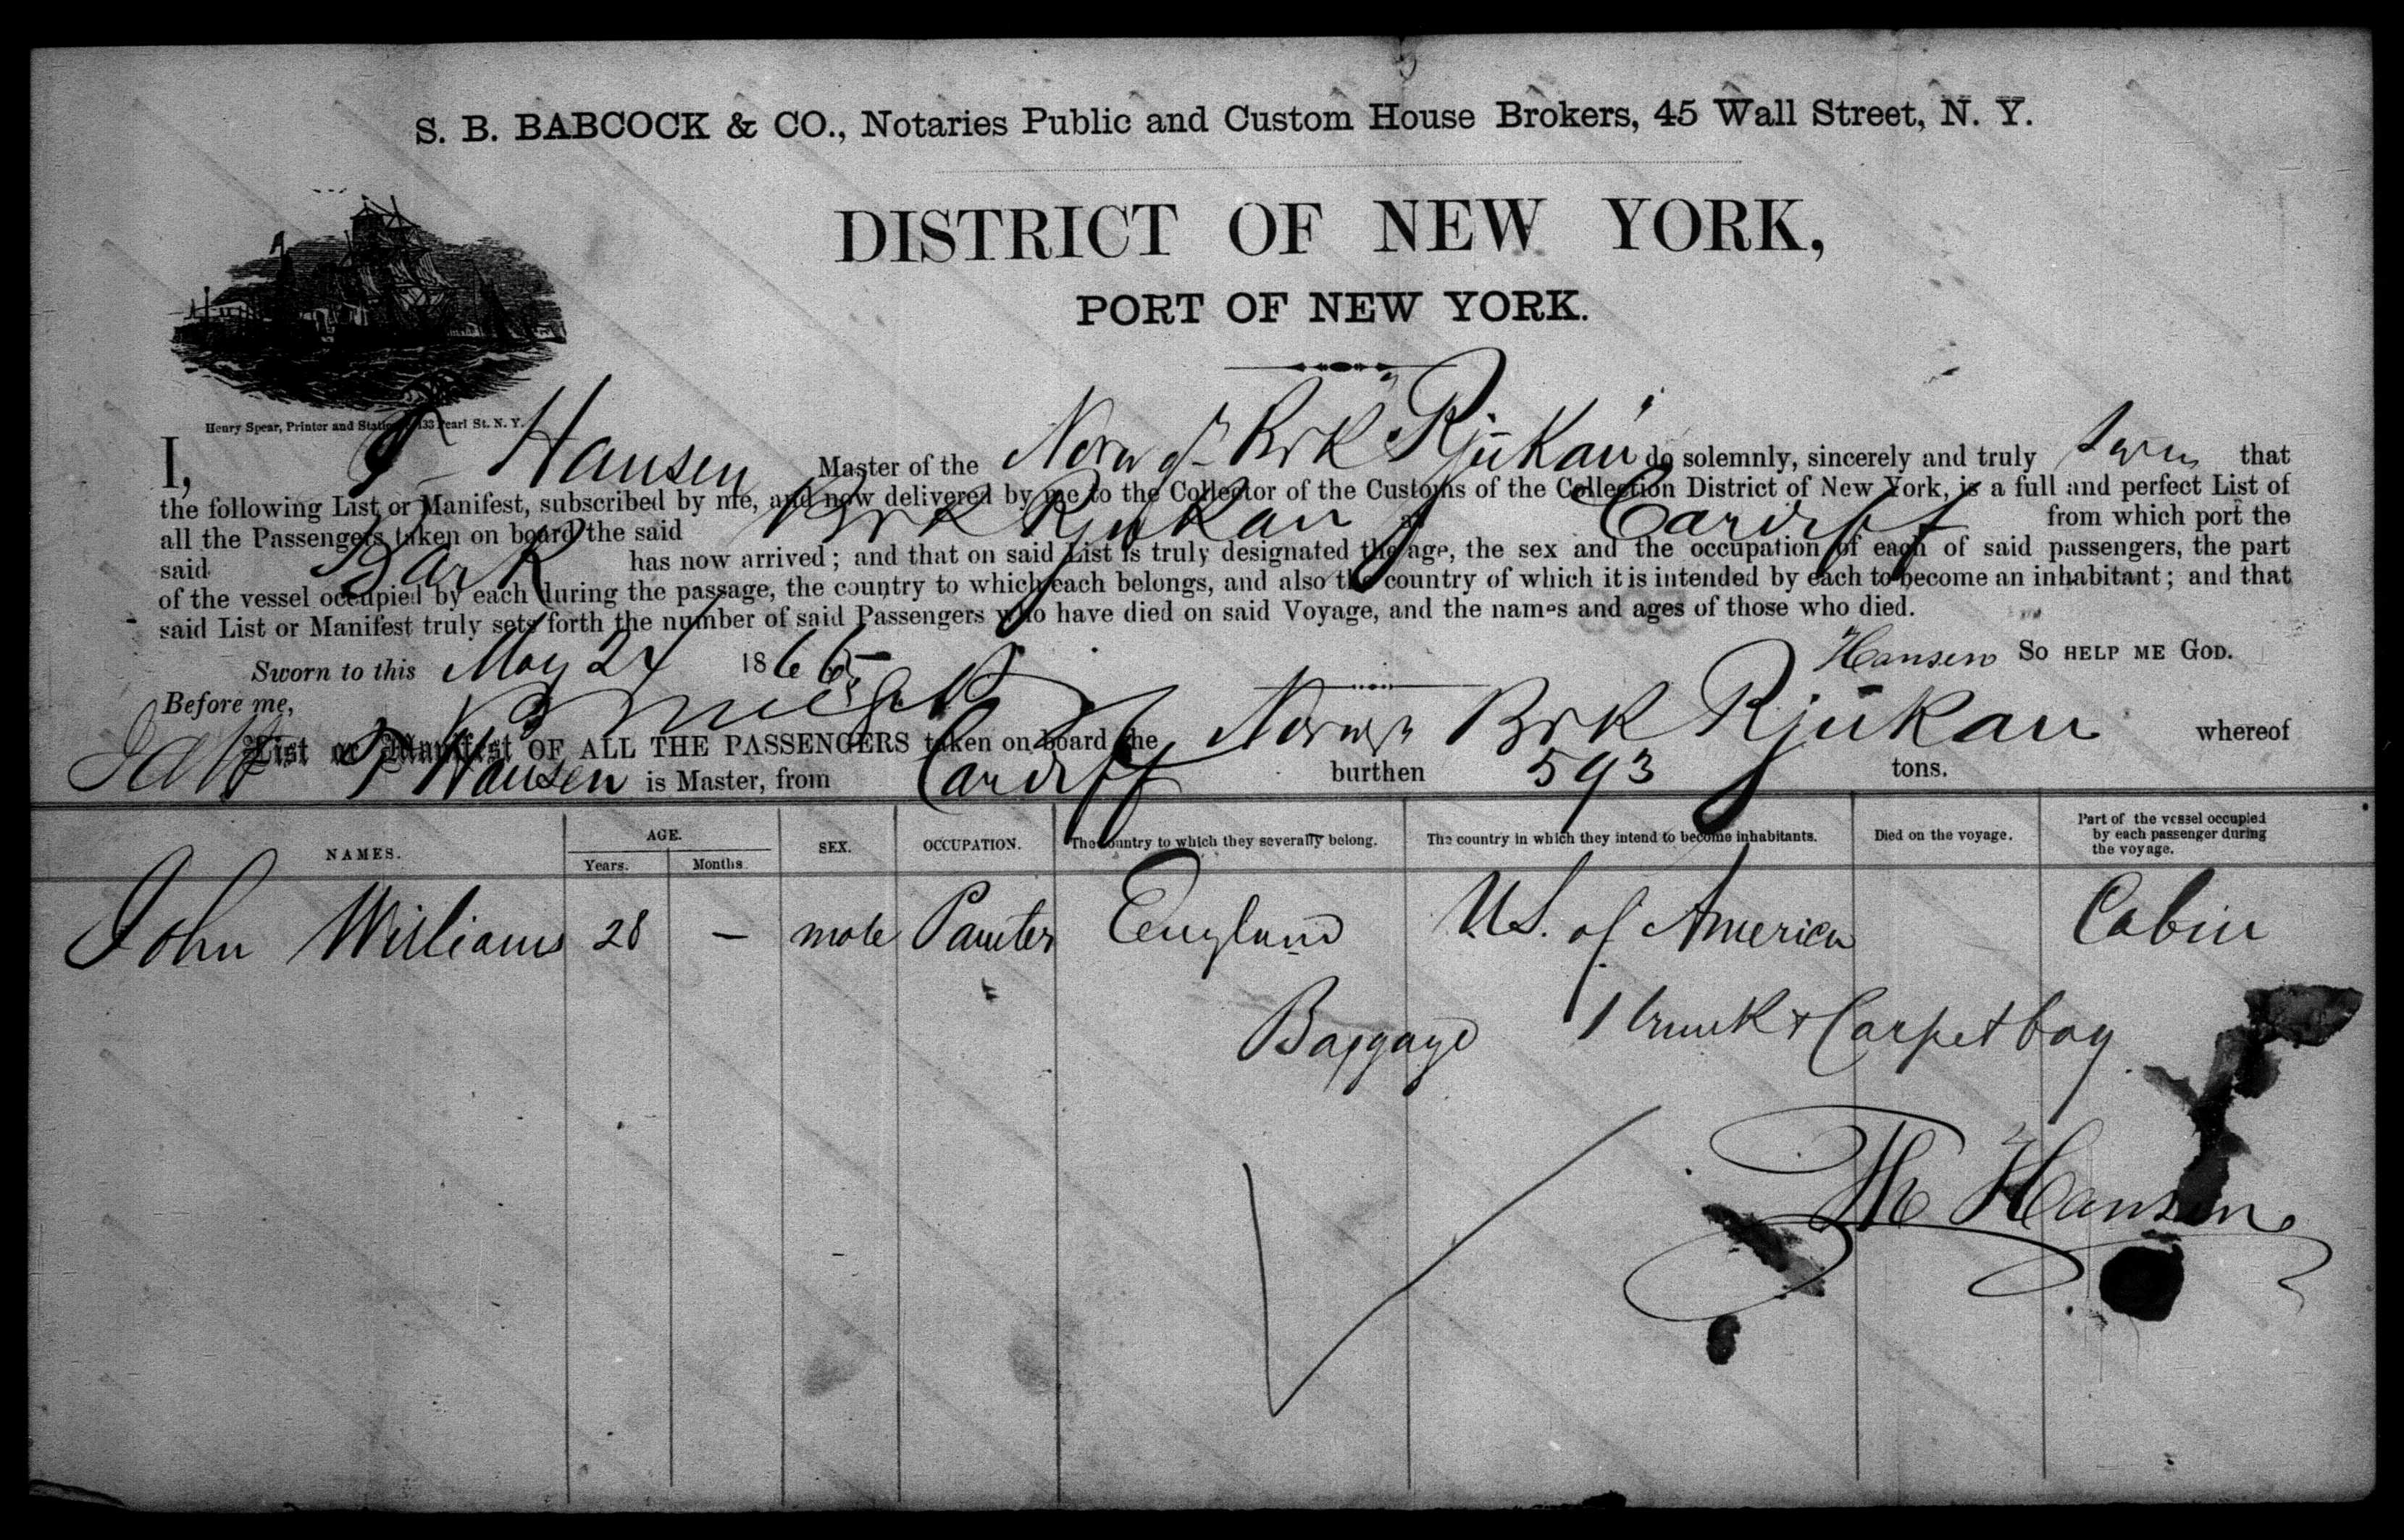 S. B. BABCOCK & CO., Notaries Public and Custom House Brokers, 45 Wall Street, N. Y.
DISTRICT OF NEW YORK,
PORT OF NEW YORK.
Henry Spear, Printer and 133 Pearl St. N. Y.
I, Hansen Master of the Brk Rjukan do solemnly, sincerely and truly that
the following List or Manifest, subscribed by me, and now delivered by me to the Collector of the Customs of the Collection District of New York, is a full and perfect List of
all the Passengers taken on board the said Brk Rjukan at Cardiff from which port the
said Bark has now arrived; and that on said List is truly designated the age, the sex and the occupation of each of said passengers, the part
of the vessel occupied by each during the passage, the country to which each belongs, and also the country of which it is intended by each to become an inhabitant; and that
said List or Manifest truly sets forth the number of said Passengers who have died on said Voyage, and the names and ages of those who died.
Sworn to this May 24 1866 Hansen SO HELP ME GOD.
Before me,
List or Manifest OF ALL THE PASSENGERS taken on board the Brk Rjukan whereof
Hansen is Master, from Cardiff burthen 593 tons.
NAMES. AGE. Years. Months. SEX. OCCUPATION. The country to which they severally belong. The country in which they intend to become inhabitants. Died on the voyage. Part of the vessel occupied by each passenger during the voyage.
John Williams 28 – male Painter England U.S. of America Cabin
Baggage 1 trunk & Carpet bag
Th Hansen